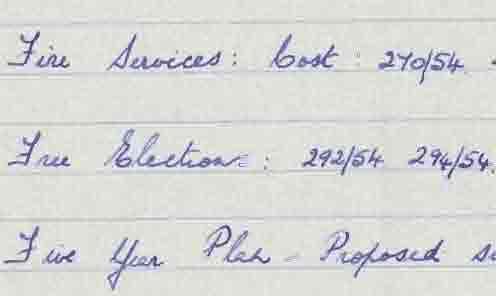 Fire Services: Cost: 270/54
Free Election: 292/54 294/54.
Five Year Plan - Proposed